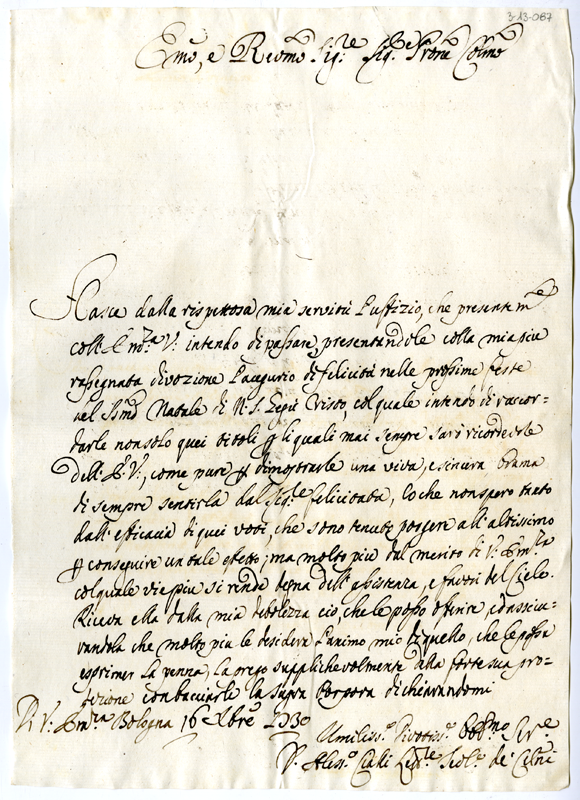 3-13-087
Emo, e Revmo Sigre Sigr Prone Colmo
Nasce dalla rispettosa mia servitù l'uffizio, che presentemte
coll'Emza V: intendo di passare, presentandole colla mia più
rassegnata divozione l'augurio di felicità nelle prossime feste
del Ssmo Natale di N: S. Giesù Cristo, col quale intendo di raccor=
darle non solo quei titoli p li quali mai sempre sarò ricordevole
dell'E: V:, come pure p dimostrarle una viva, e sincera brama
di sempre sentirla dal Sigre felicitata, lo che non spero tanto
dall'efficacia di quei voti, che sono tenuto porgere all'altissimo
p conseguire un tale effetto; ma molto più dal merito di V: Emza
col quale vie più si rende degna dell'assistenza, e favori del Cielo.
Riceva ella dalla mia debolezza ciò, che le posso offerire, ed assicu=
randola che molto più le desidera l'animo mio di quello, che le possa
esprimer la penna, la prego supplichevolmente alla forte sua pro=
tezione con baciarle la sagra Porpora dichiarandomi
Di V: Emza Bologna 16 Xbre 1730
Umiliss:o Divotiss:o Obblmo Sre
Aless:o